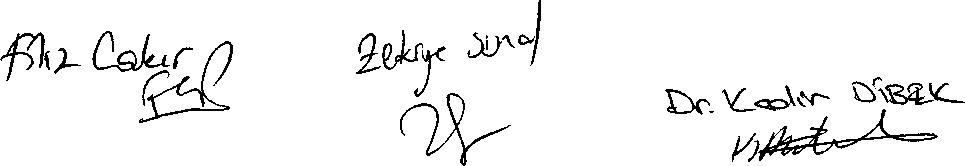 Filiz Cakır
Zekiye Sinal
Dr. Kadir DİBEK